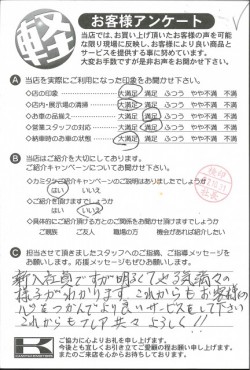 軽
お客様アンケート
当店では、お買い上げ頂いたお客様の声を可能
な限り現場に反映し、お客様により良い商品と
サービスを提供する事に努めています。
大変お手数ですが是非お声をお聞かせ下さい。
A 当店を実際にご利用になった印象をお聞かせ下さい。
◇店の印象 大満足 満足 ふつう やや不満 不満
◇店内・展示場の清掃 大満足 満足 ふつう やや不満 不満
◇お車の品揃え 大満足 満足 ふつう やや不満 不満
◇営業スタッフの対応 大満足 満足 ふつう やや不満 不満
◇納車時のお車の状態 大満足 満足 ふつう やや不満 不満
B 当店はご紹介を大切にしてあります。
ご紹介キャンペーンについてお聞かせ下さい。
◇カミタケご紹介キャンペーンのご説明はありましたでしょうか
はい いいえ
◇ご紹介を頂けますでしょうか
はい いいえ
◇具体的にご紹介頂ける方とのご関係をお聞かせ頂けますでしょうか
ご親族 ご友人 職場の方 機会があればご紹介したい
C 担当させて頂きましたスタッフへのご指摘、ご指導メッセージを
お願いします。応援メッセージもぜひお願いします。
新入社員ですが明るくてやる気満々の
様子がわかります。これからもお客様の
心をつかんでより良いサービスをして下さい
これからもフレア共々よろしく!!
K
ご協力に心よりお礼を申し上げます。
今後とも宜しくお引き立てご愛顧の程お願い申し上げます。
またのご来店を心からお待ちしております。